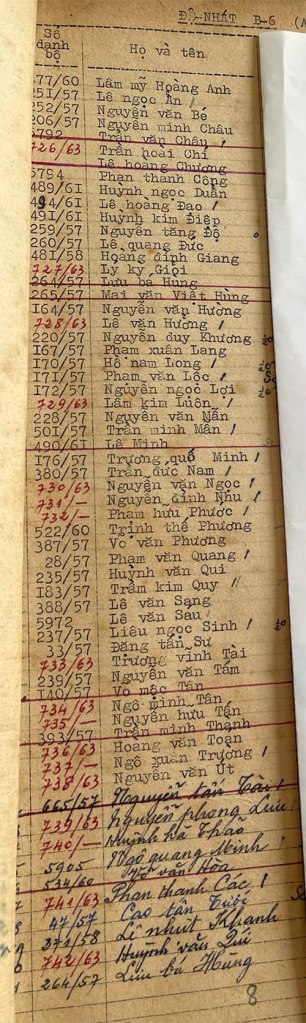 ĐỆ-NHÁT B-6 (A
Số danh bộ Họ và tên
477/60 Lâm mỹ Hoàng Anh
251/57 Lê ngọc Ẩn /
252/57 Nguyễn văn Bé
206/57 Nguyễn minh Châu
5792 Trần văn Chân /
726/63 Trần hoài Chí
Lê hoàng Chương
5794 Phan thanh Công
489/61 Huỳnh ngọc Duẩn
494/61 Lê hoàng Đạo /
491/61 Huỳnh kim Điệp
259/57 Nguyễn tăng Độ
260/57 Lê quang Đức
481/58 Hoàng đình Giang
727/63 Ly ky Giỏi
264/57 Lưu bá Hùng
265/57 Mai văn Việt Hùng
164/57 Nguyễn văn Hường
728/63 Lê văn Hường /
220/57 Nguyễn duy Khương
167/57 Phạm xuân Lang
170/57 Hồ nam Long /
171/57 Phạm văn Lộc /
172/57 Nguyễn ngọc Lợi
729/63 Lâm kim Luôn /
228/57 Nguyễn văn Mẫn
501/57 Trần minh Mẫn /
490/61 Lê Minh
176/57 Trương quế Minh /
380/57 Trần đức Nam /
730/63 Nguyễn văn Ngọc /
731/— Nguyễn đình Nhu /
732/— Phạm hưu Phước /
522/60 Trịnh thế Phương
387/57 Vo văn Phương
28/57 Phạm văn Quang /
235/57 Huỳnh văn Qui
183/57 Trầm kim Quy /
388/57 Lê văn Sang
5972 Lê văn Sáu
237/57 Liêu ngọc Sinh /
33/57 Đặng tấn Sư
733/63 Trương vĩnh Tài
239/57 Nguyễn văn Tám
140/57 Vo mộc Tân
734/63 Ngô minh Tân
735/— Nguyễn hưu Tấn
393/57 Trần minh Thanh
736/63 Hoàng văn Toạn
737/— Ngô xuân Trương /
738/63 Nguyễn văn Út
665/57 Nguyễn tấn Tài /
739/63 Nguyễn phong Lưu
740/— Huỳnh hà Thảo
5905 Ngô quang Minh /
534/60 Võ văn Hòa
741/63 Phan thanh Các /
47/57 Cao tấn
271/58 Lê nhựt Khanh
742/63 Huỳnh văn Túi
264/57 Lưu bá Hùng
8